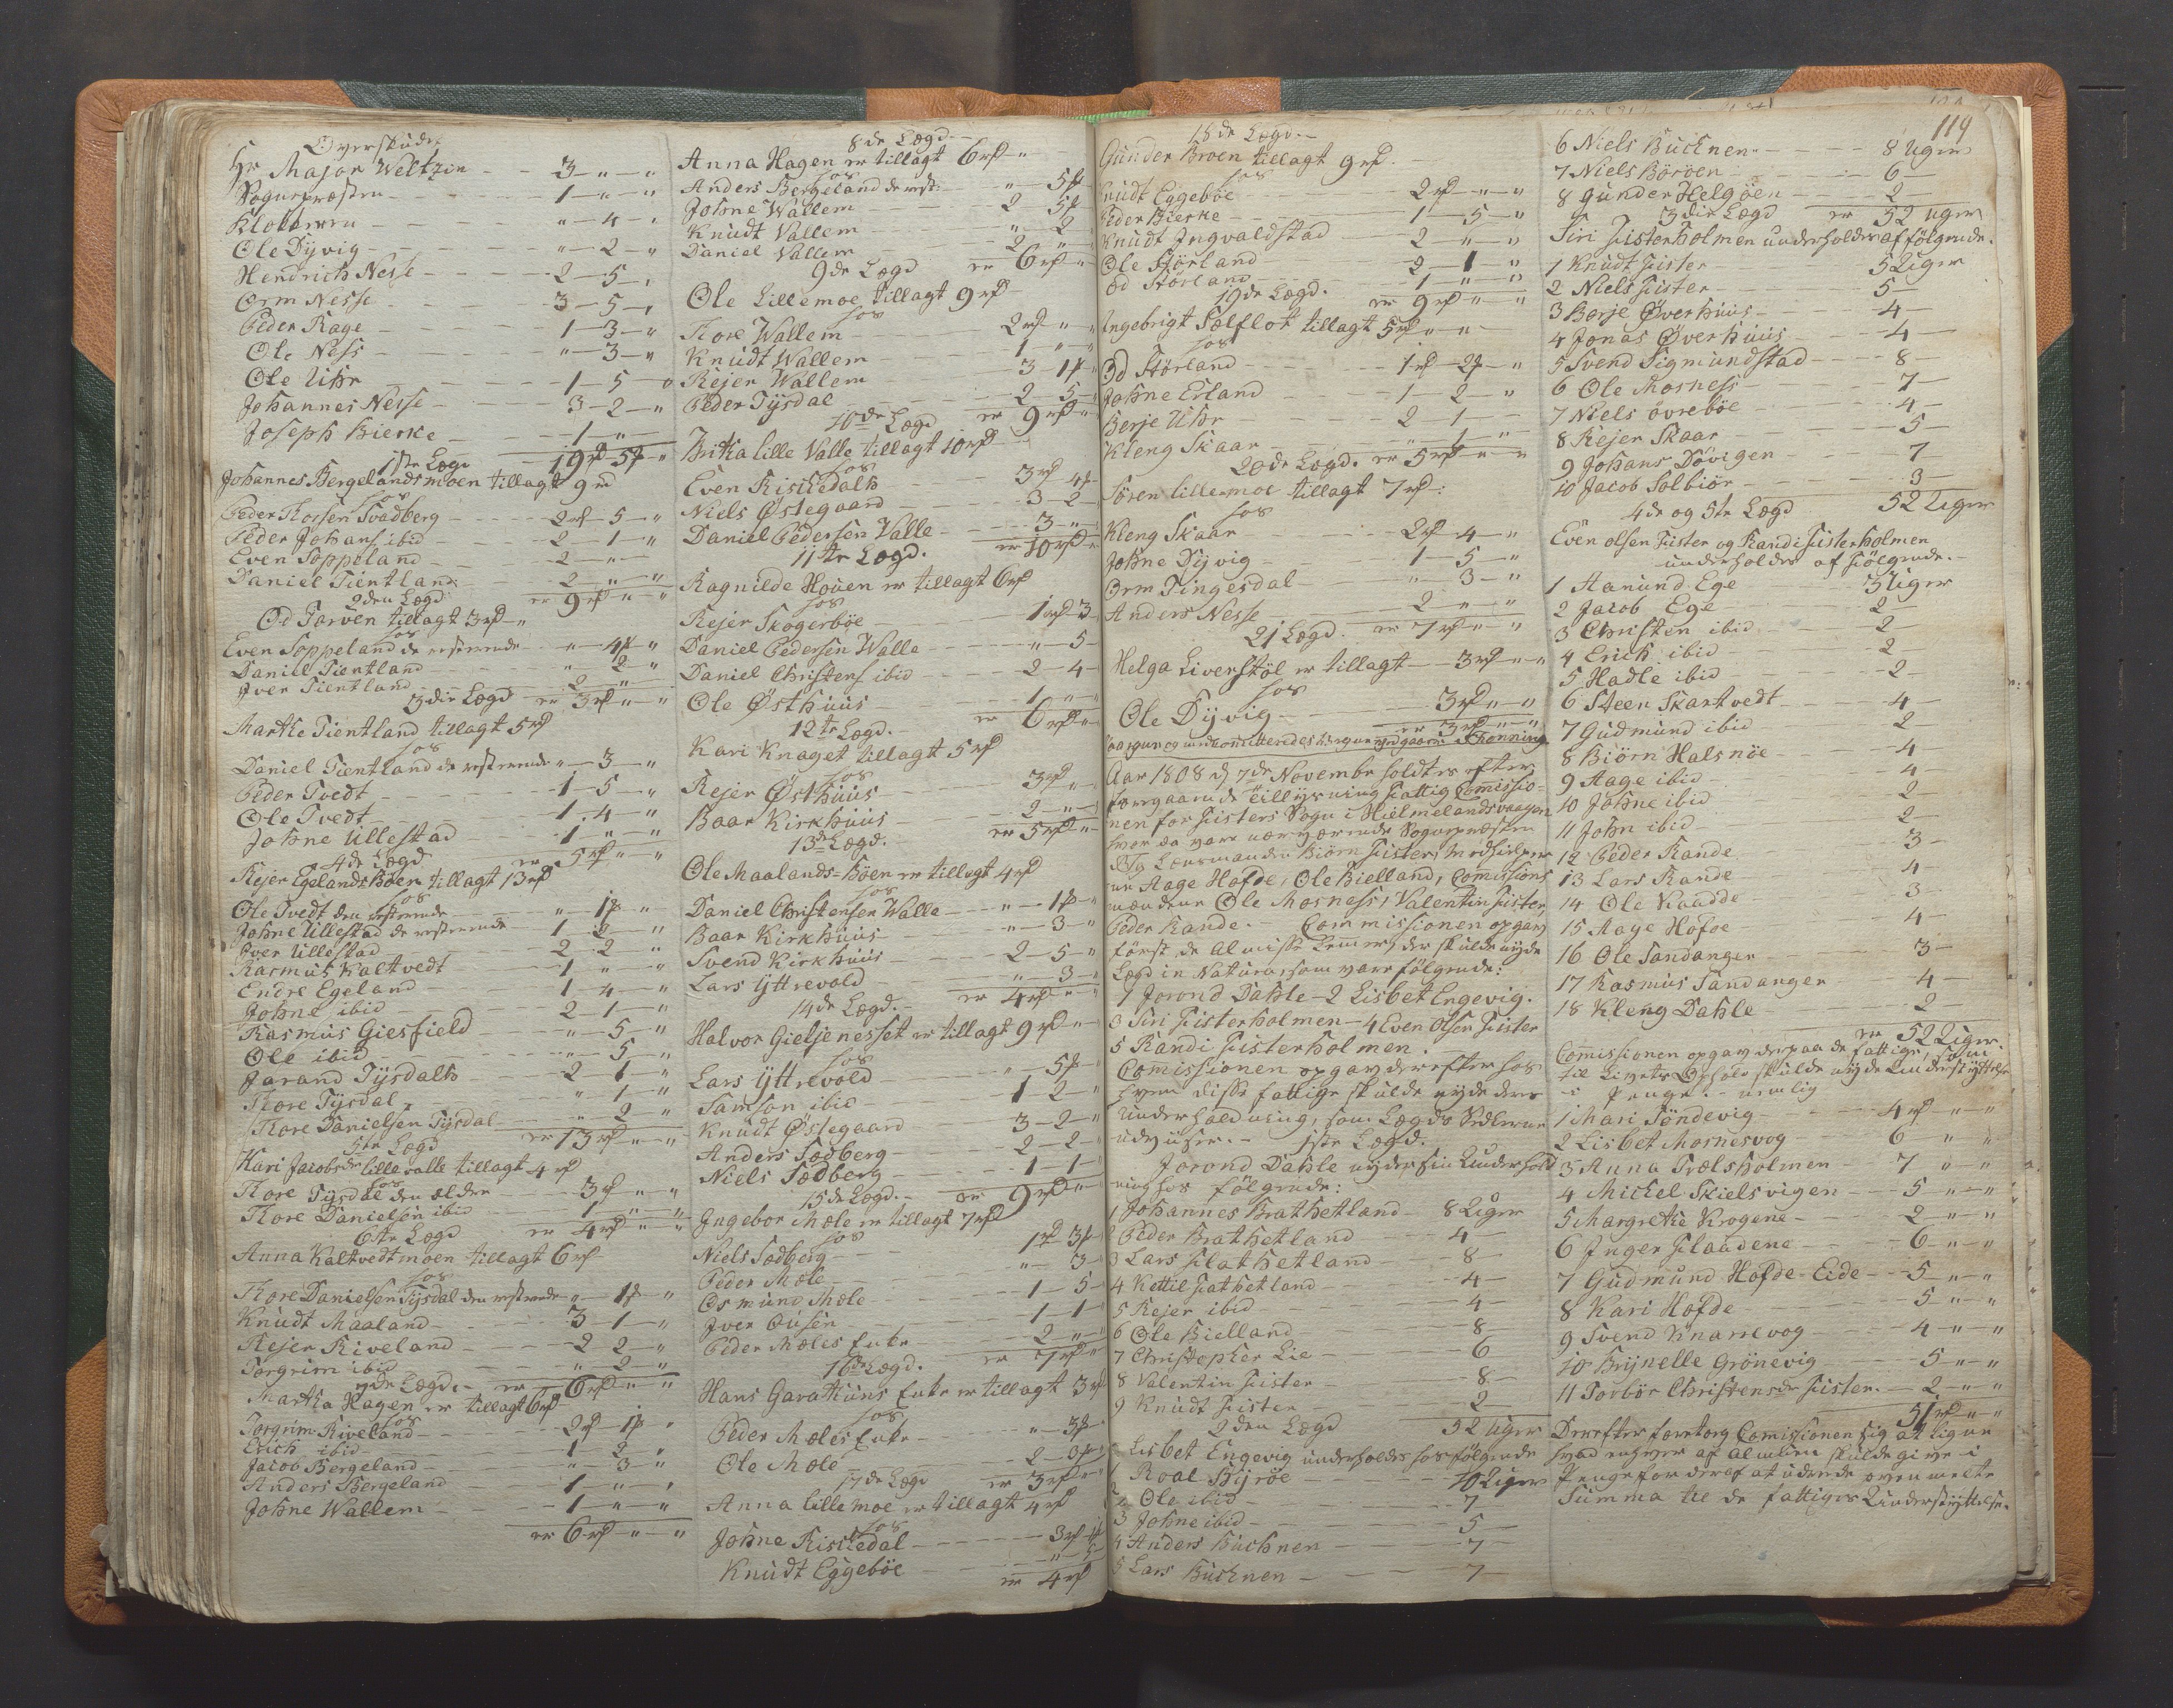 Overskudt
Hr Major Weltzin 3 " "
Sognepræsten 1 " "
Klokkeren " 4 "
Ole Dyvig " 2 "
Hendrich Nesse 2 5 "
Orm Nesse 3 5 "
Peder Rage 1 3 "
Ole Ness " 3 "
Ole Uhr 1 5 "
Johannes Nesse 3 2 "
Joseph Bierke 1 "
19 rd 5 "
1ste Lægd
Johannes Bergelandsmoen tillagt 9 rd
hos
Peder Thorsen Svadberg 2 rd 5 "
Peder Johans. ibid 2 1 "
Even Soppeland 2 "
Daniel Tientland 2 " "
er 9 rd " "
2den Lægd
Od Tarven tillagt 3 rd "
hos
Even Soppeland de resterende " 4 "
Daniel Tientland " 2 "
Iver Tientland 2 "
er 3 rd " "
3die Lægd
Marthe Tientland tillagt 5 rd
hos
Daniel Tientland de resterende " 3 "
Peder Tvedt 1 5 "
Ole Tvedt 1 4 "
Johne Ullestad 1 " "
er 5 rd " "
4de Lægd
Rejer Egelands Böen tillagt 13 rd
hos
Ole Tvedt den resterende " 1 "
Johne Ullestad de resterende 1
Iver Ullestad 2 2 "
Rasmus Kaltvedt 1 " "
Endre Egeland 1 4 "
Johne ibid 2 1 "
Rasmus Giesfield " 5 "
Ole ibid " 5 "
Jarand Tysdahl 2 1 "
Thore Tysdal " 1 "
Thore Danielsen Tysdal " 2 "
er 13 rd " "
5te Lægd
Kari Jacobsdr lille valle tillagt 4 rd
hos
Thore Tysdal den ælden 3 rd " "
Thore Danielsen ibid 1 " "
er 4 rd " "
6te Lægd
Anna Kaltvedtmoen tillagt 6 rd
hos
Thore Danielsen Tysdal den resterende " 1 "
Knudt Maaland 3 1 "
Rejer Riveland 2 2 "
Torgrim ibid " 2 "
er 6 rd " "
7de Lægd.
Martha Hagen er tillagt 6 rd
hos
Torgrim Riveland 2 rd 1 "
Erich ibid 1 2 "
Jacob Bergeland " 3 "
Anders Bergeland 1 " "
Johne Wallem 1 " "
er 6 rd " "
8de Lægd.
Anna Hagen er tillagt 6 rd "
hos
Anders Bergeland de rest: " 5
Johne Wallem 2 5
Knudt Vallem " 2
Daniel Vallem 2 "
er 6 rd "
9de Lægd
Ole Lillemoe tillagt 9 rd
hos
Thore Wallem 2 rd " "
Knudt Wallem 1 " "
Rejer Wallem 3 1 "
Peder Tysdal 2 5 "
er 9 rd "
10de Lægd
Britha lille Valle tillagt 10 rd
hos
Even Riskedahl 3 rd 4
Niels Østegaard 3 2
Daniel Pedersen Valle 3 "
er 10 rd "
11te Lægd.
Ragnilde Houen er tillagt 6 rd
hos
Rejer Skogerböe 1 rd 3
Daniel Pedersen Walle " 5
Daniel Christens. ibid 2 4
Ole Østhuus 1 "
er 6 rd "
12te Lægd.
Kari Knaget tillagt 5 rd
hos
Rejer Østhuus 3 rd "
Baar Kirkhuus 2 "
er 5 rd "
13de Lægd.
Ole Maalands-Böen er tillagt 4 rd
hos
Daniel Christensen Walle " 1 "
Baar Kirkhuus " 3 "
Svend Kirkhuus 2 5 "
Lars Yttrevold " 3 "
er 4 rd " "
14de Lægd.
Halvor Gielsenesset er tillagt 9 rd "
hos
Lars Yttrevold " 5
Samson ibid 1 2
Knudt Østegaard 3 2
Anders Sædberg 2 2
Niels Sædberg 1 1
er 9 rd "
15de Lægd.
Ingebor Mæle er tillagt 7 rd
hos
Niels Sædberg 1 rd 3
Peder Mæle " 3
Osmund Mæle 1 5
Iver Ousen 1 1
Peder Mæles Enke 2 "
er 7 rd "
16de Lægd.
Hans Garathuuns Enke er tillagt 3 rd
hos
Peder Mæles Enke " 3
Ole Mæle 2 3
er 3 rd "
17de Lægd
Anna Lillemoe er tillagt 4 rd
hos
Johne Riskedal 3 rd 1
Knudt Eggeböe " 5
er 4 rd
18de Lægd.
Gunder Broen tillagt 9 rd.
hos
Knudt Eggeböe 2 rd " "
Peder Bierke 1 5 "
Knudt Ingvaldstad 2 " "
Ole Størland 2 1 "
Od Størland 1 " "
er 9 rd " "
19de Lægd.
Ingebrigt Sælflot tillagt 5 rd " "
hos
Od Størland 1 rd 2 "
Johne Erland 1 2 "
Berje Uhr 2 1 "
Kleng Skaar " 1 "
er 5 rd " "
20de Lægd.
Søren Lillemoe tillagt 7 rd:
hos
Kleng Skaar 2 rd 4 "
Johne Dyvig 1 5 "
Orm Tingesdal " 3 "
Anders Nesse 2 " "
er 7 rd " "
21 Lægd.
Helga Liverstöl er tillagt 3 rd " "
hos
Ole Dyvig 3 rd " "
er 3 rd " "
Aar 1808 d 7de Novembr holdtes efter
foregaaende Tillysning Fattig Comissio-
nen for Fisters Sogn i Hielmelandsvaagen
hvor da vare nærværende Sognepræsten
Lensmanden Biörn Fister, Medhielper
ne Aage Hofde, Ole Bielland, Comissions
mændene Ole Mosness, Valentin Fister,
Peder Rande. Commissionen opgav
först de Almisse Lemer, der skulde nyde
Lægd in Natura, som vare fölgende:
1 Jorond Dahle - 2 Lisbet Engevig.
3 Siri Fisterholmen - 4 Even Olsen Fister
5 Randi Fisterholmen.
Comissionen opgav derefter hos
hvem disse fattige skulde nyde deres
Underholdning, som Lægds Rullerne
udviiser. - 1ste Lægd.
Jorond Dahle nyder sin Underhold
ning hos fölgende:
1 Johannes Brathetland 8 Uger
2 Peder Brathetland 4
3 Lars Flathetland 8
4 Kettil Flathetland 4
5 Rejer ibid 4
6 Ole Bielland 8
7 Christopher Lie 6
8 Valentin Fister 8
9 Knudt Fister 2
52 Uger
2den Lægd
Lisbet Engevig underholdes hos fölgende
1 Roal Byröe 10 Uger
2 Ole ibid 7
3 Johne ibid 5
4 Anders Buchnen 7
5 Lars Buchnen 7
119
6 Niels Buchnen 8 Uger
7 Niels Böröen 6
8 Gunder Helgöen 2
er 52 Uger
3die Lægd
Siri Fisterholmen underholdes af fölgende.
1 Knudt Fister 5 Uger
2 Niels Fister 5
3 Berje Øverhuus 4
4 Jonas Øverhuus 4
5 Svend Sigmundstad 8
6 Ole Mosness 7
7 Niels övreböe 4
8 Rejer Skaar 5
9 Johans Dövigen 7
10 Jacob Solbiör 3
52 Uger
4de og 5te Lægd
Even Olsen Fister og Randi Fisterholmen
underholdes af fölgende.
1 Aamund Ege 3 Uger
2 Jacob Ege 2
3 Christen ibid 2
4 Erich ibid 2
5 Hadle ibid 2
6 Steen Skartvedt 4
7 Gudmund ibid 2
8 Biörn Halsnöe 4
9 Aage ibid 4
10 Johne ibid 2
11 John ibid 2
12 Peder Rande 3
13 Lars Rande 4
14 Ole Raadde 3
15 Aage Hofde 4
16 Ole Sandanger 3
17 Rasmus Sandanger 4
18 Kleng Dahle 2
er 52 Uger.
Comissionen opgav derpaa de fattige, som
til Livets Ophold skulde nyde Understyttelse
i Penge. - nemlig
1 Mari Töndevig 4 rd " "
2 Lisbet Mosnesvog 6 " "
3 Anna Trælsholmen 7 " "
4 Michel Skielsvigen 5 " "
5 Margrethe Krogene 2 " "
6 Inger Flaadene 6 " "
7 Gudmund Hofde-Eide 5 " "
8 Kari Hofde 5 " "
9 Svend Knarrevog 4 " "
10 Brynelle Grönevig 5 " "
11 Torbör Christensdr Fister. 2 " "
51 rd " "
Derefter foretog Comissionen sig at ligne
hvad enhver af Almuen skulde give i
Penge for deraf at udrede ovenmelte
Summa til de fattiges Understyttelse.